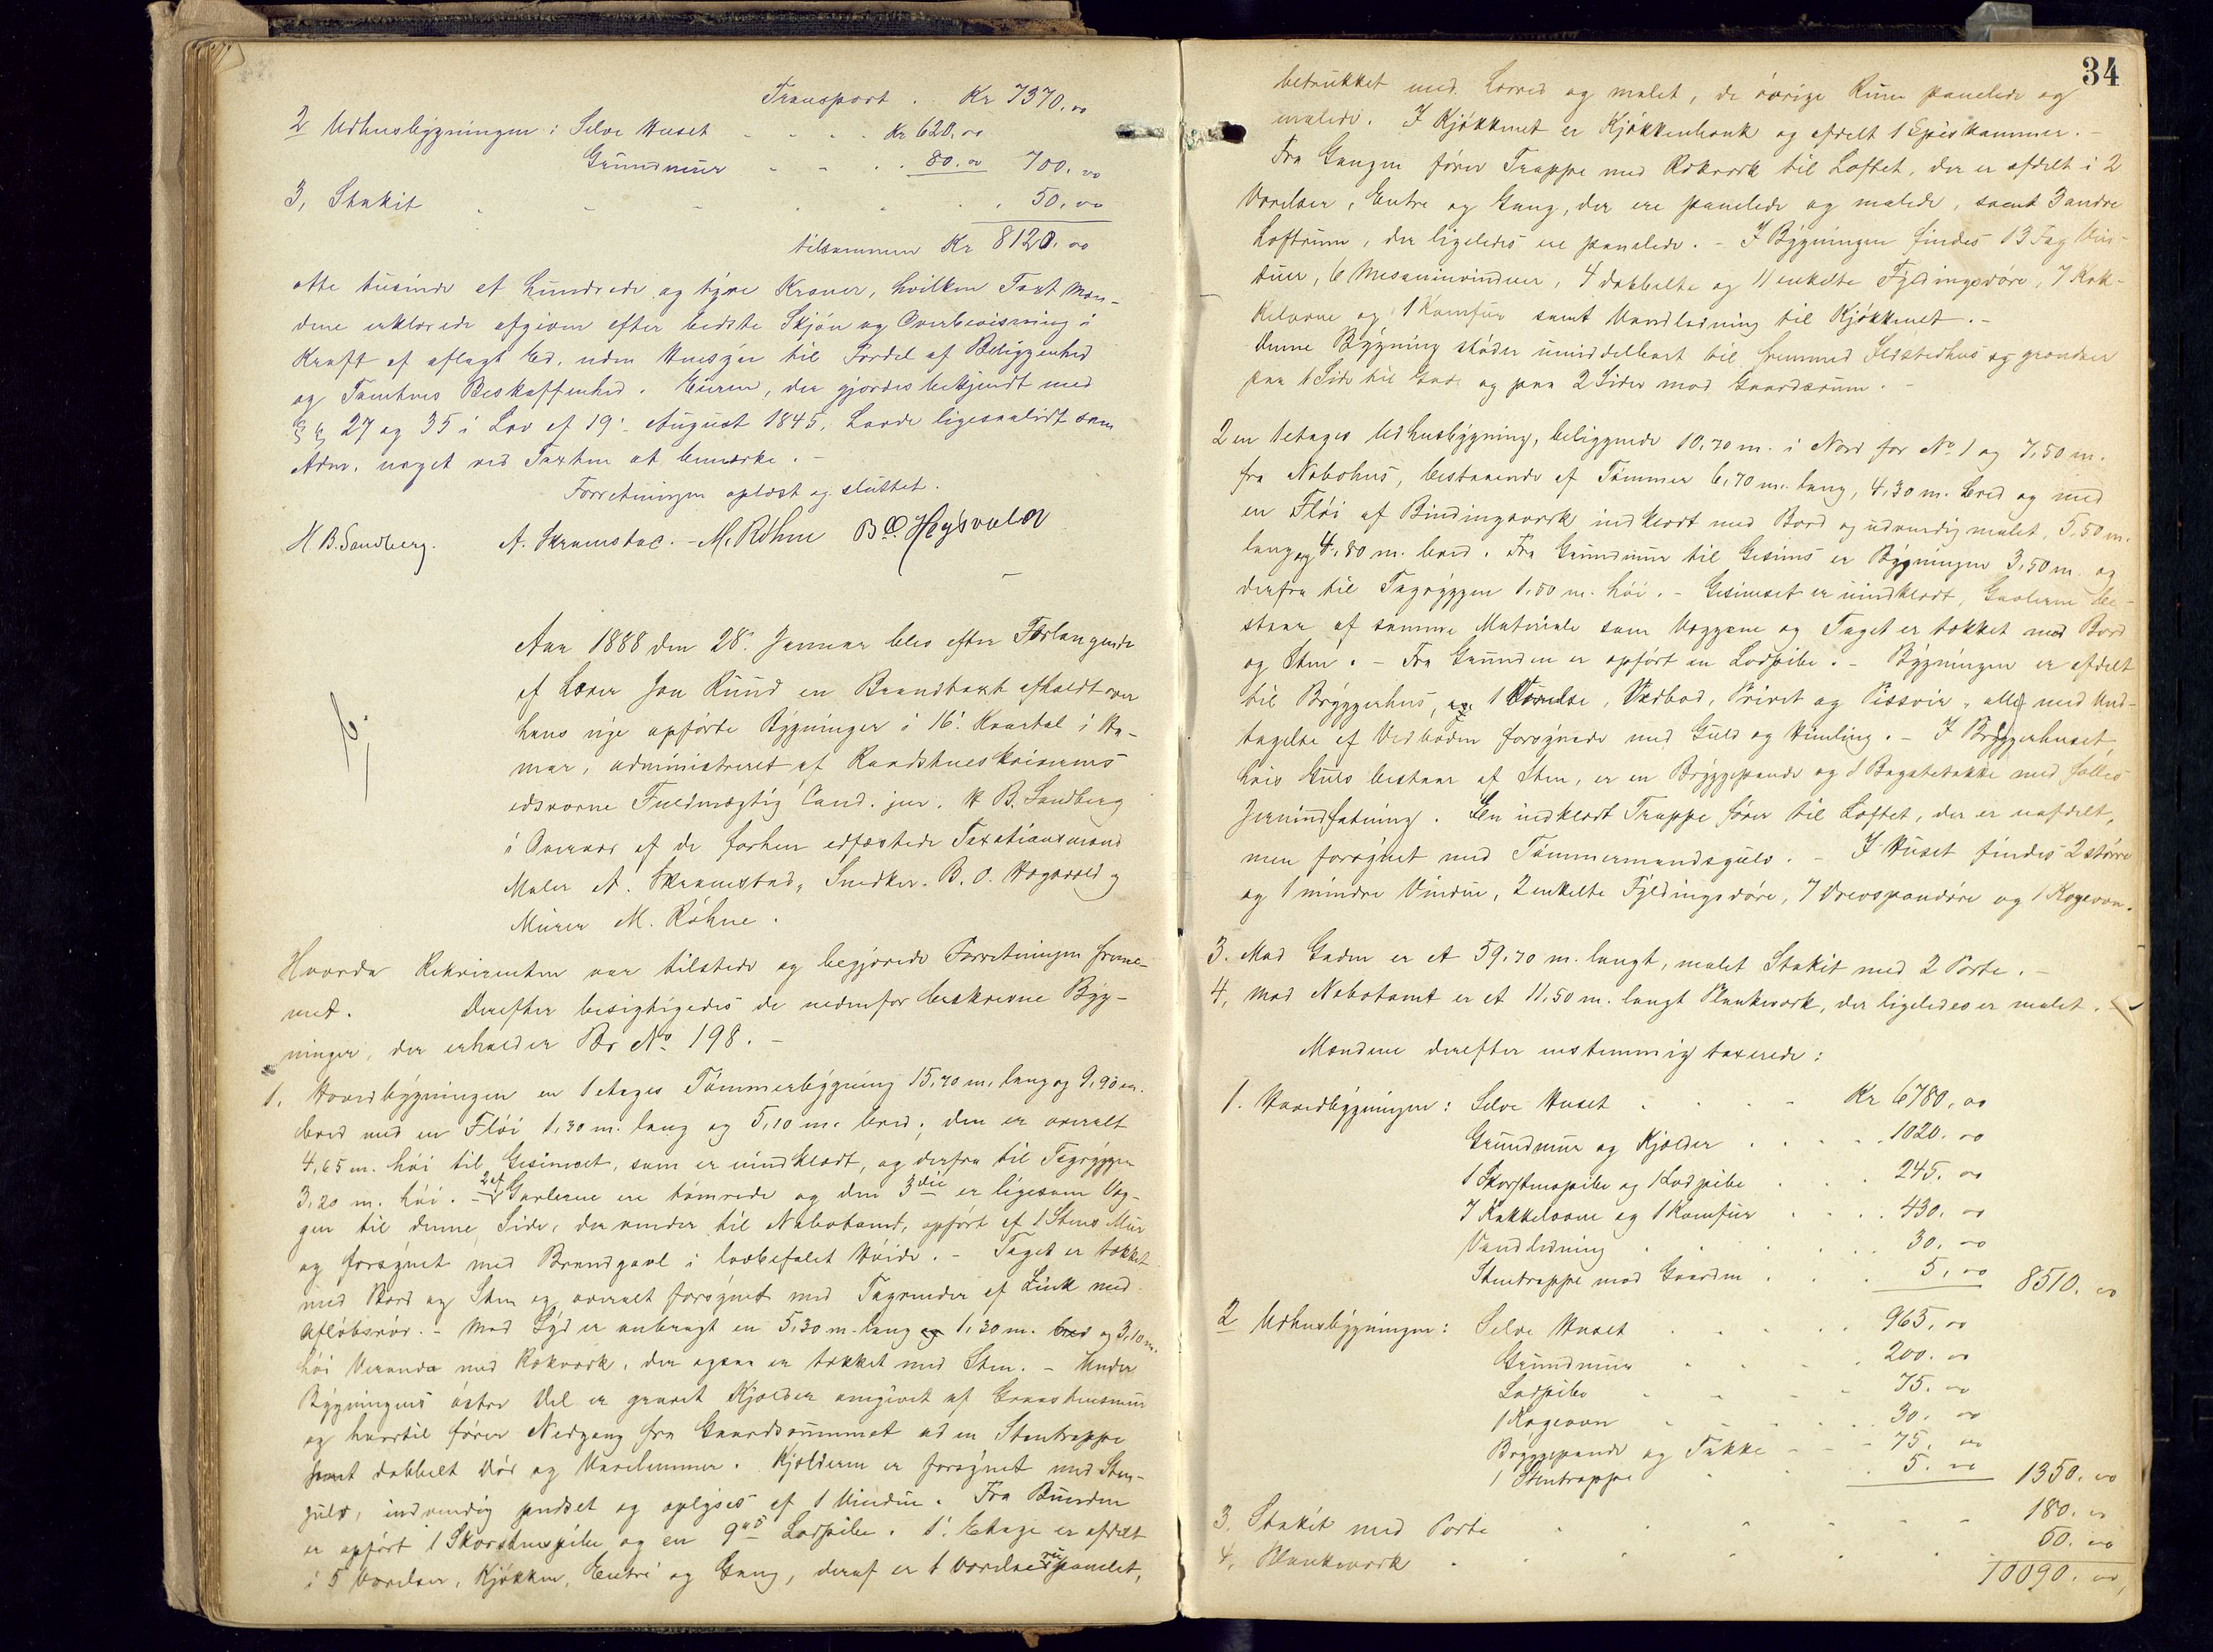 Transport . Kr 7370.00
2 Udhusbygningen: Selve Huset . . . . Kr 620.00
Grundmur . . . . 80.00 700.00
3, Stakit . . . . . . . 50.00
tilsammen Kr 8120.00
otte tusinde et hundrede og tyve Kroner, hvilken Taxt Mæn-
dene erklærede afgiven efter bedste Skjøn og Overbevisning i
Kraft af aflagt Ed, uden Hensyn til Fordel af Beliggenhed
og Tomtens Beskaffenhed. Eieren, der gjordes bekjendt med
§§ 27 og 35 i Lov af 19. August 1845, havde ligesaalidt som
Adm. noget ved Taxten at bemærke. –
Forretningen oplæst og sluttet.
H. B. Sandberg. A. Skramstad. – M. Röhne B. O. Høgsvold
Aar 1888 den 28. Januar blev efter Forlangende
af Lærer Jon Ruud en Brandtaxt afholdt over
hans nye opførte Bygninger i 16. Kvartal i Ha-
mar, administreret af Raadstueskriverens
edsvorne Fuldmægtig Cand. jur. H B. Sandberg
i Overvær af de forhen edfæstede Taxationsmænd
Maler A. Skramstad, Snedker B. O. Høgsvold og
Murer M. Röhne.
Hvorda Rekvirenten var tilstede og begjærede Forretningen fremme-
met. Derefter besigtigedes de nedenfor beskrevne Byg-
ninger, der erholder Br No 198. –
1. Hovedbygningen en 1 etages Tømmerbygning 15,70 m. lang og 9,90 m.
bred med en Fløi 1,30 m. lang og 5,10 m. bred; den er overalt
4,65 m. høi til Gesimset, som er indklædt, og derfra til Tagryggen
3,20 m. høi. – 2 af Gavlerne ere tømrede og den 3die er ligesom Væg-
gen til denne Side, der vender til Nabotomt, opført af 1 Stens Mur
og forsynet med Brandgavl i lovbefalet Høide. – Taget er tækket
med Bord og Sten og overalt forsynet med Tagrender af Zink med
Afløbsrør. – Mod Syd er anbragt en 5,30 m. lang og 1,30 m. bred og 3,10 m.
høi Veranda med Rækværk, der ogsaa er tækket med Sten. – Under
Bygningens østre Del er gravet Kjælder omgivet af Graastensmur
og hvortil fører Nedgang fra Gaardsrummet ad en Stentrappe
samt dobbelt Dør og Karelemmer. Kjælderen er forsynet med Sten-
gulv, indvendig pudset og oplyses af 1 Vindue. Fra Bunden
er opført 1 Skorstenspibe og en 9" Lodpibe. 1. Etage er afdelt
i 5 Værelser, Kjøkken, Entré og Gang, deraf er 1 Værelse panelet,
34
betrukket med Lærred og malet, de øvrige Rum panelede og
malede. I Kjøkkenet er Kjøkkenbænk og afdelt 1 Spiskammer. –
Fra Gangen fører Trappe med Rækværk til Loftet, der er afdelt i 2
Værelser, Entre og Gang, der ere panelede og malede, samt 3 andre
Loftrum, der ligeledes ere panelede. – I Bygningen findes 13 Fag Vin-
duer, 6 Mesaninvinduer, 4 dobbelte og 11 enkelte Fyldingsdøre, 7 Kak-
kelovne og 1 Komfur samt Vandledning til Kjøkkenet. –
Denne Bygning støder umiddelbart til fremmed Ildstedhus og grændser
paa 1 Side til Gade og paa 2 Sider mod Gaardsrum. –
2 en 1 etages Udhusbygning, beliggende 10,70 m. i Nord for No 1 og 7,50 m.
fra Nabohus, bestaaende af Tømmer 6,70 m. lang, 4,30 m. bred og med
en Fløi af Bindingsværk indklædt med Bord og udvendig malet, 5,50 m.
lang og 4,80 m. bred. Fra Grundmur til Gesims er Bygningen 3,50 m. og
derfra til Tagryggen 1,50 m. høi. – Gesimset er uindklædt, Gavlerne be-
staar af samme Materiale som Væggene og Taget er tækket med Bord
og Sten. – Fra Grunden er opført en Lodpibe. – Bygningen er afdelt
til Bryggerhus, 1 Værelse, Vedbod, Privet og Pissoir, alle med Und-
tagelse af Vedboden forsynede med Gulv og Himling. – I Bryggerhuset,
hvis Gulv bestaar af Sten, er en Bryggepande og 1 Bagstetakke med fælles
Jernindfatning. En indklædt Trappe fører til Loftet, der er uafdelt,
men forsynet med Tømmermandsgulv. – I Huset findes 2 større
og 1 mindre Vindue, 2 enkelte Fyldingsdøre, 7 Drevspandøre og 1 Kogeovn.
3. Mod Gaden er et 59,70 m. langt, malet Stakit med 2 Porte. –
4, Mod Nabotomt er et 11,50 m. langt Plankeværk, der ligeledes er malet. –
Mændene derefter enstemmig taxerede:
1. Hovedbygningen: Selve Huset . . . . Kr 6780,00
Grundmur og Kjælder . . . . 1020.00
1 Skorstenspibe og 1 Lodpibe . . . 245.00
7 Kakkelovne og 1 Komfur . . . 430.00
Vandledning . . . . 30.00
Stentrappe mod Gaarden . . . 5,00 8510.00
2 Udhusbygningen: Selve Huset . . . . 965,00
Grundmur . . . . 200.00
Lodpibe . . . . 75.00
1 Kogeovn . . . . 30.00
Bryggepande og Takke . . . 75.00
1 Stentrappe . . . 5.00 1350.00
3. Stakit med Porte . . . . . 180.00
4, Plankeværk . . . . . 50.00
10090.00,